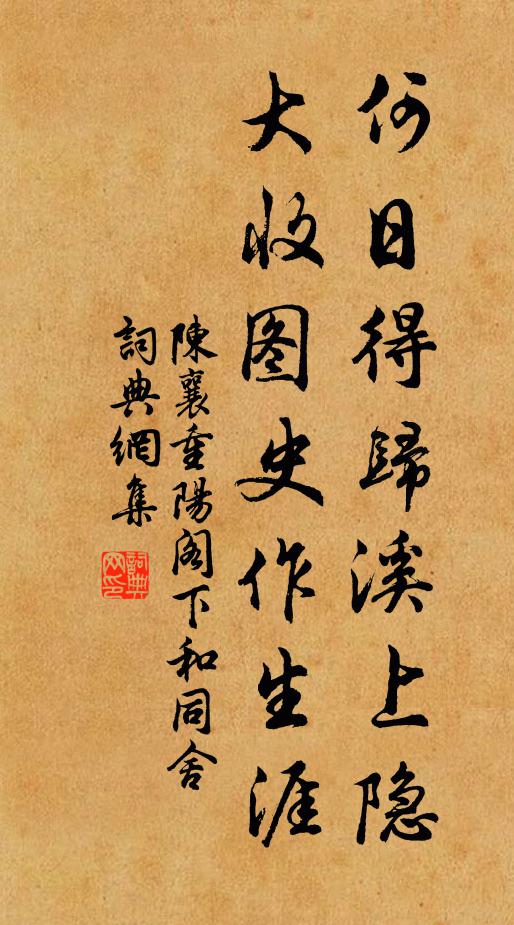 何日得歸溪上隐
大收图史作生涯
陳襄重陽阁下和同舍
詞典網集
詞典网印